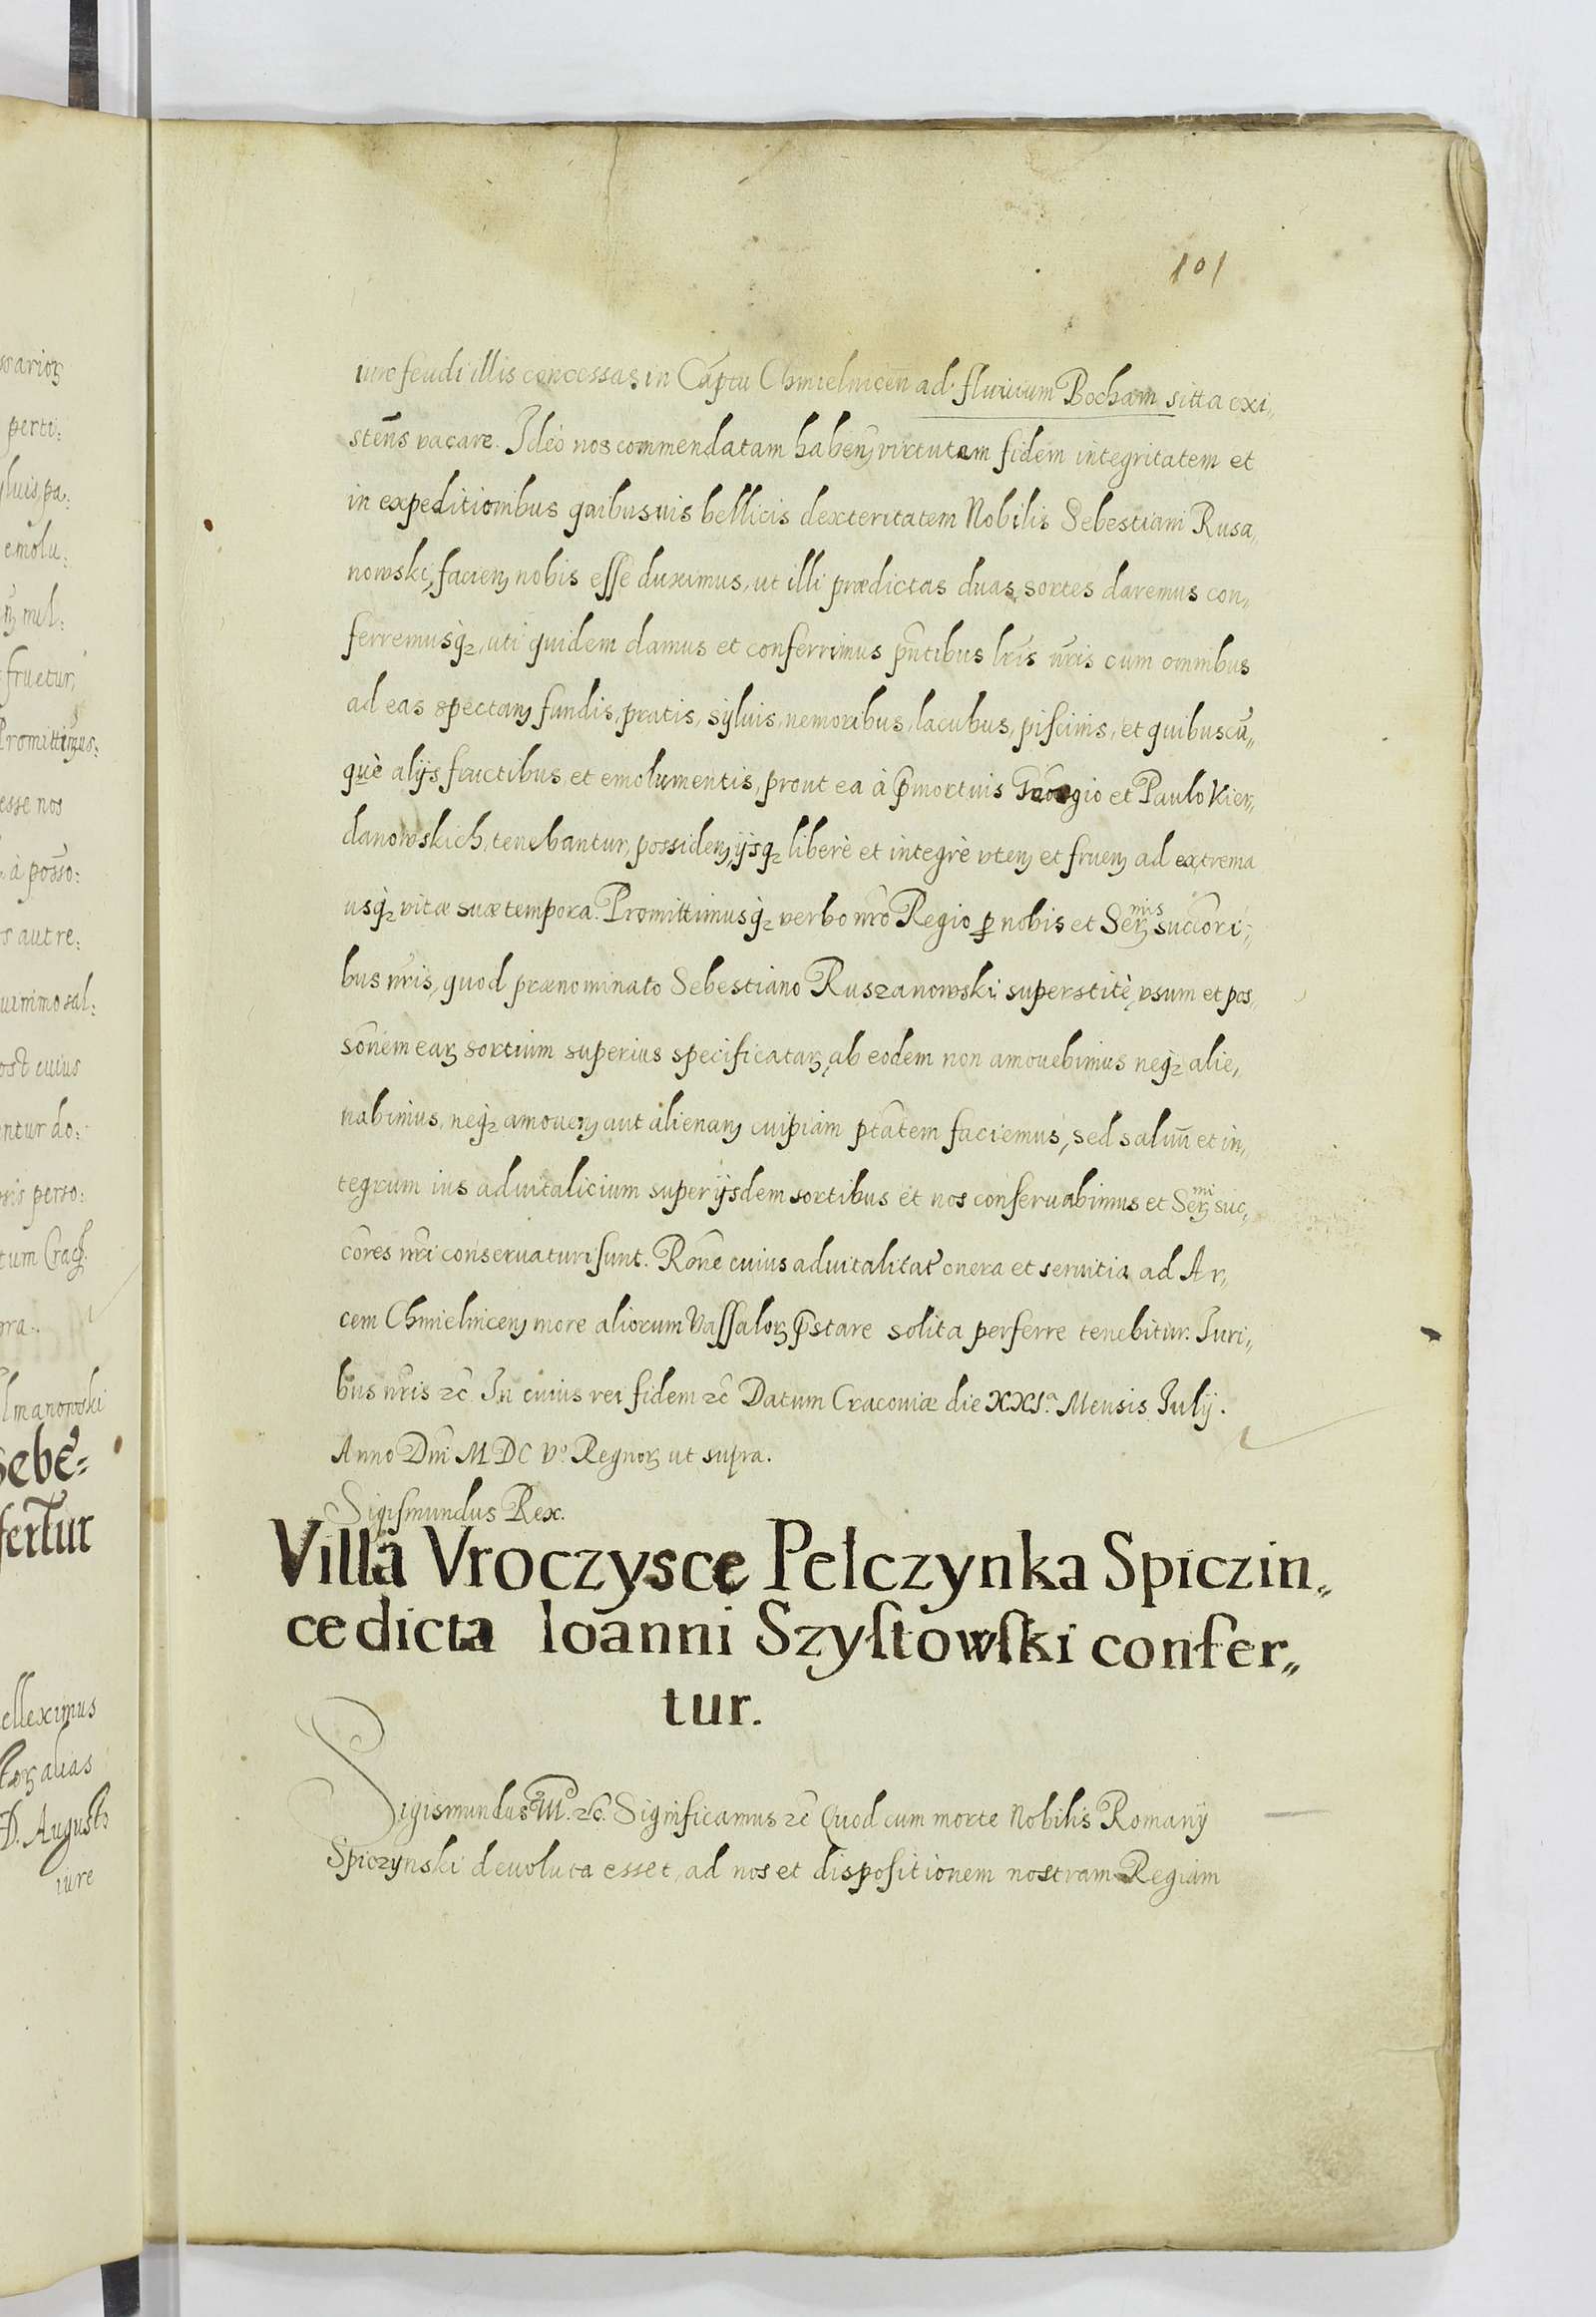 101
iure feudi illis concessas in Cãptu Chmielnicen̄ ad fluuium Bocham sitta exi„
sten̄s vacare. Ideò nos commendatam habenꝫ virtutem fidem integritatem et
in expeditionibus quibusuis bellicis dexteritatem Nobilis Sebestiani Rusa„
nowski, facienꝫ nobis esse duximus, ut illi prædictas duas sortes daremus con„
ferremusqꝫ, uti quidem damus et conferrimus pn̄tibus lrīs nr̄is cum omnibus
ad eas spectanꝫ fundis, pratis, syluis, nemoribus, lacubus, piscinis, et quibuscū„
què alijs fructibus et emolumentis, prout ea à p̄mortuis Georgio et Paulo Kier„
danowskich, tenebantur, possidenꝫ, ijsqꝫ liberè et integrè vtenꝫ et fruenꝫ ad extrema
usqꝫ vitæ suæ tempora. Promittimusqꝫ verbo nr̄o Regio ꝓ nobis et Serꝫmis succōri„
bus nr̄is, quod prænominato Sebestiano Ruszanowski superstitè, vsum et pos„
sōnem earꝫ sortium superius specificatarꝫ, ab eodem non amouebimus neqꝫ alie„
nabimus, neqꝫ amouenꝫ aut alienanꝫ cuipiam ptātem faciemus, sed saluū et in„
tegrum ius aduitalicium super ijsdem sortibus et nos conseruabimus et Serꝫmi suc„
cōres nr̄i conseruaturi sunt. Rōne cuius aduitalitat̄ onera et seruitia ad Ar„
cem Chmielnicenꝫ more aliorum Vassalorꝫ p̄stare solita perferre tenebitur. Iuri„
bus nr̄is ⁊c̄ In cuius rei fidem ⁊c̄ Datum Cracouiæ die XXIª. Mensis Iulij.
Anno Dn̄i MDC Vº. Regnorꝫ ut supra.
Sigismundus Rex.
Villa Vroczysce Pelczynka Spiczin„
ce dicta Ioanni Szystowski confer„
tur.
Sigismundus III. ⁊c̄. Significamus ⁊c̄ Quod cum morte Nobilis Romanij
Spiczynski deuoluta esset, ad nos et dispositionem nostram Regiam